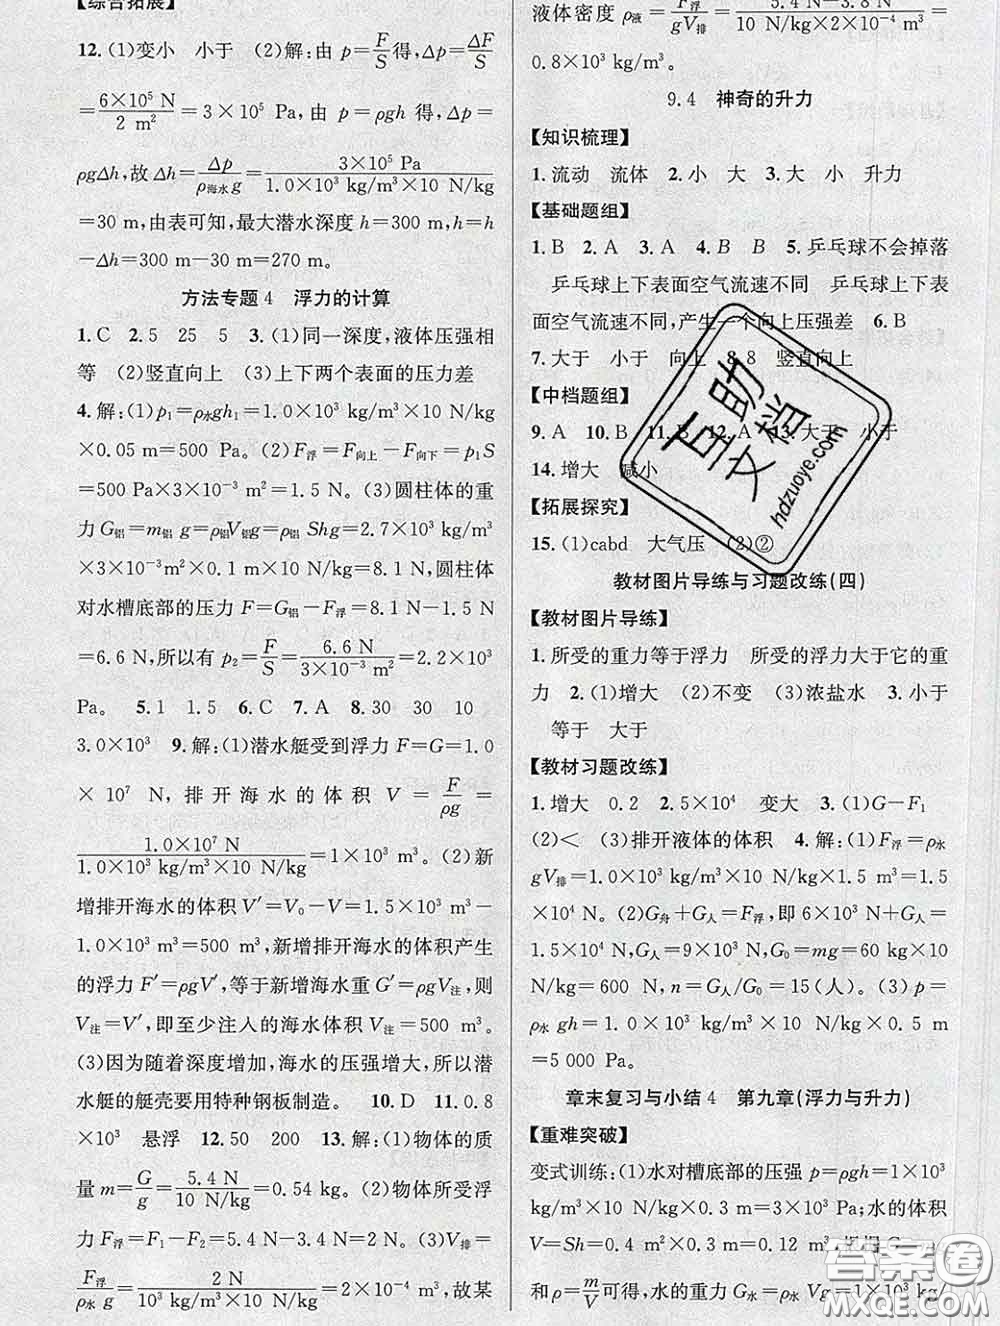 【综合拓展】
12.(1)变小 小于 (2)解:由 p=F/S得,Δp=ΔF/S
=6×10⁵ N/2 m²=3×10⁵ Pa,由 p=ρgh 得,Δp=
ρgΔh,故 Δh=Δp/ρ海水g=3×10⁵ Pa/1.0×10³ kg/m³×10 N/kg
=30 m,由表可知,最大潜水深度 h=300 m,h=h
-Δh=300 m-30 m=270 m。
方法专题 4 浮力的计算
1.C 2.5 25 5 3.(1)同一深度,液体压强相
等 (2)竖直向上 (3)上下两个表面的压力差
4.解:(1)p₁=ρ水gh₁=1.0×10³ kg/m³×10 N/kg
×0.05 m=500 Pa。(2)F浮=F向上-F向下=p₁S
=500 Pa×3×10⁻³ m²=1.5 N。(3)圆柱体的重
力 G铝=m铝 g=ρ铝V铝g=ρ铝 Shg=2.7×10³ kg/m³
×3×10⁻³ m²×0.1 m×10 N/kg=8.1 N,圆柱体
对水槽底部的压力 F=G铝-F浮=8.1 N-1.5 N
=6.6 N,所以有 p₂=F/S=6.6 N/3×10⁻³ m²=2.2×10³
Pa。 5.1 1.5 6.C 7.A 8.30 30 10
3.0×10³ 9.解:(1)潜水艇受到浮力 F=G=1.0
×10⁷ N,排开海水的体积 V=F/ρg=
1.0×10⁷ N/1.0×10³ kg/m³×10 N/kg=1×10³ m³。(2)新
增排开海水的体积 V′=V₀-V=1.5×10³ m³-
1.0×10³ m³=500 m³,新增排开海水的体积产生
的浮力 F′=ρgV′,等于新增海水重 G′=ρgV注,则
V注=V′,即至少注入的海水体积 V注=500 m³。
(3)因为随着深度增加,海水的压强增大,所以潜
水艇的艇壳要用特种钢板制造。 10.D 11.0.8
×10³ 悬浮 12.50 200 13.解:(1)物体的质
量 m=G/g=5.4 N/10 N/kg=0.54 kg。(2)物体所受浮
力 F浮=F₁-F₂=5.4 N-3.4 N=2 N。(3)V排=
F浮/ρ水 g=2 N/10³ kg/m³×10 N/kg=2×10⁻⁴ m³,故某
液体密度 ρ液=F浮/gV排=5.4 N-3.8 N/10 N/kg×2×10⁻⁴ m³=
0.8×10³ kg/m³。
9.4 神奇的升力
【知识梳理】
1.流动 流体 2.小 大 3.大 小 升力
【基础题组】
1.B 2.A 3.A 4.B B 5.乒乓球不会掉落
乒乓球上下表面空气流速不同 乒乓球上下表
面空气流速不同,产生一个向上压强差 6.B
7.大于 小于 向上 8.8 竖直向上
【中档题组】
9.A 10.B 11.B 12.A 13.大于 小于
14.增大 减小
【拓展探究】
15.(1)cabd 大气压 (2)②
教材图片导练与习题改练(四)
【教材图片导练】
1.所受的重力等于浮力 所受的浮力大于它的重
力 2.(1)增大 (2)不变 (3)浓盐水 3.小于
等于 大于
【教材习题改练】
1.增大 0.2 2.5×10⁴ 变大 3.(1)G-F₁
(2)< (3)排开液体的体积 4.解:(1)F浮=ρ水
gV排=1.0×10³ kg/m³×10 N/kg×1.5 m³=1.5
×10⁴ N。(2)G舟+G人=F浮,即 6×10³ N+G人=
1.5×10⁴ N,G人=9×10³ N,G₀=mg=60 kg×10
N/kg=600 N,n=G人/G₀=15(人)。(3)p=
ρ水 gh=1.0×10³ kg/m³×10 N/kg×0.5 m
=5 000 Pa。
章末复习与小结 4 第九章(浮力与升力)
【重难突破】
变式训练:(1)水对槽底部的压强 p=ρgh=1×10³
kg/m³×10 N/kg×0.3 m=3×10³ Pa,水的体积
V=Sh=0.4 m²×0.3 m=0.12 m³,根据 G=mg
和 ρ=m/V可得,水的重力 G水=ρ水 Vg=1×10³ kg/
百助文档
hdzuoye.com
答案圈
MXQE.COM